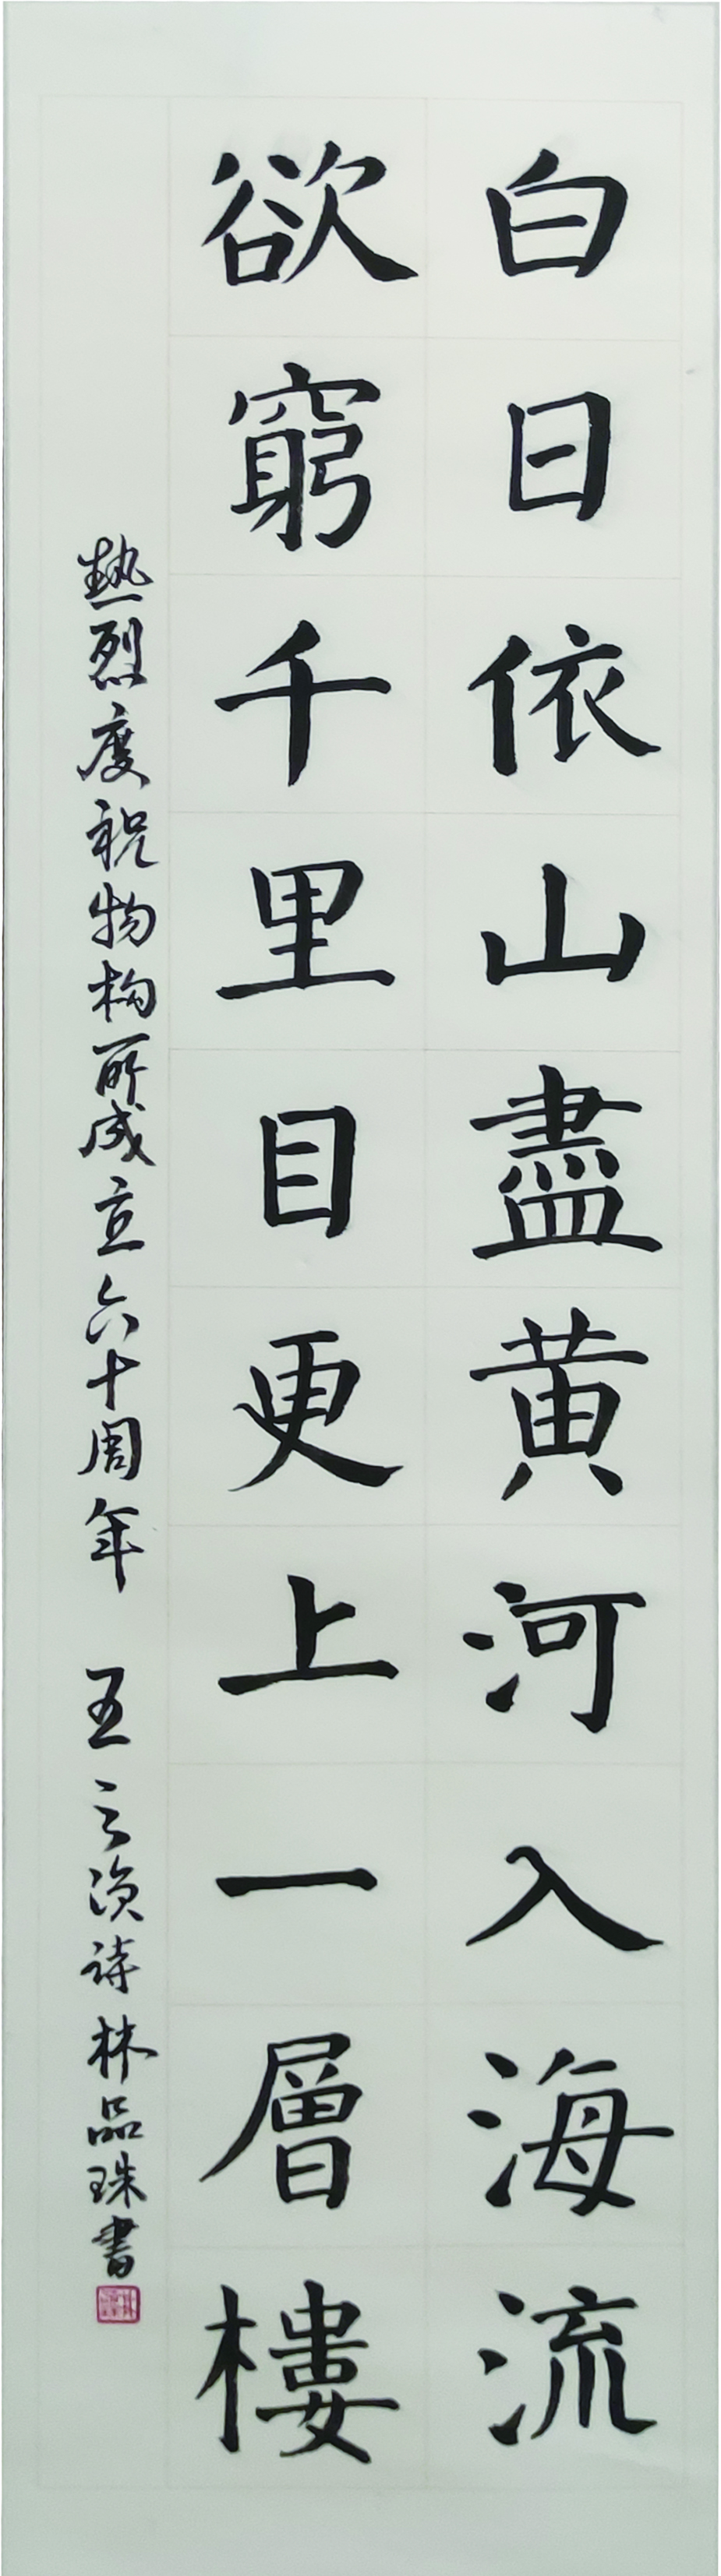 白日依山盡黄河入海流
欲窮千里目更上一層樓
熱烈慶祝物构所成立六十周年 王之渙詩 林品珠書